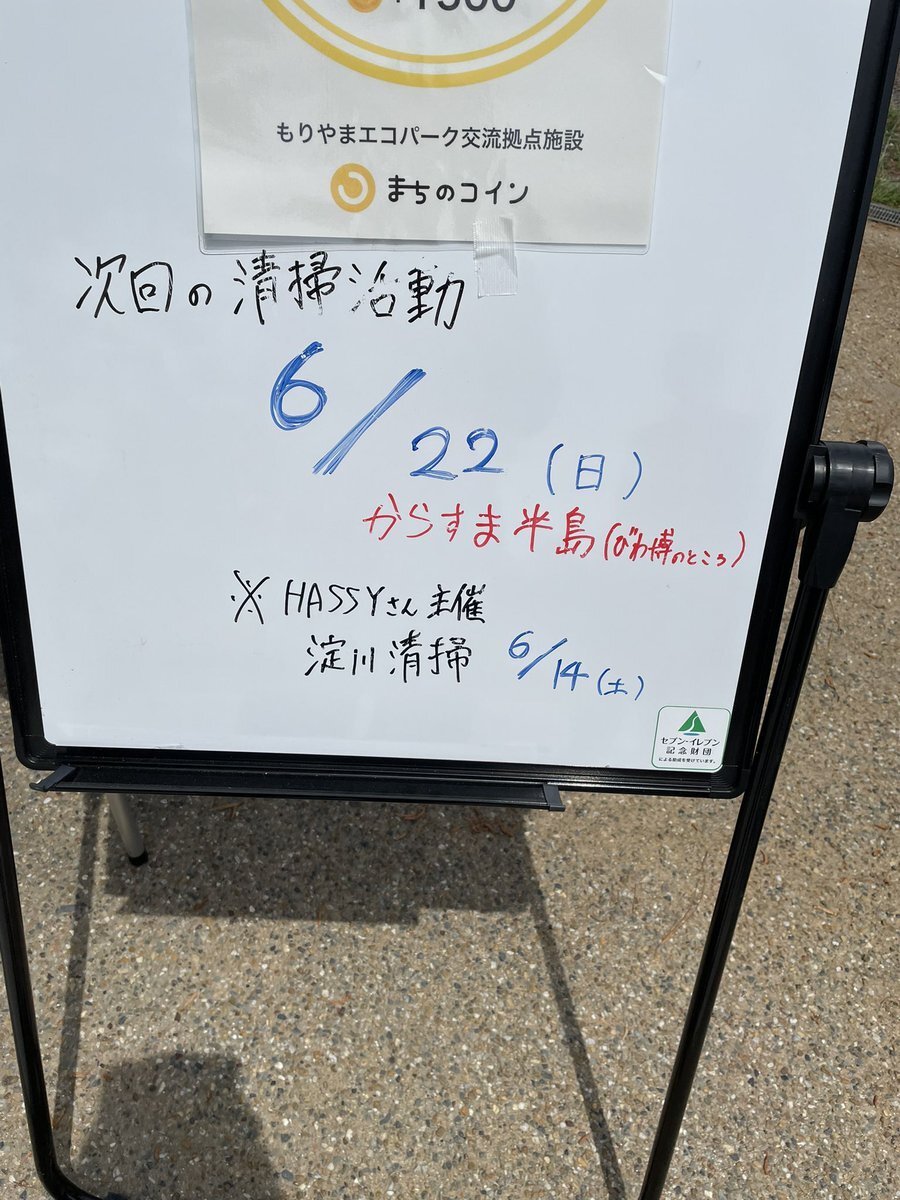 もりやまエコパーク交流拠点施設
まちのコイン
次回の清掃活動
6/22(日)
からすま半島(びわ博のところ)
※HASSYさん主催
淀川清掃 6/14(土)
セブン-イレブン
記念財団
による助成を受けています。